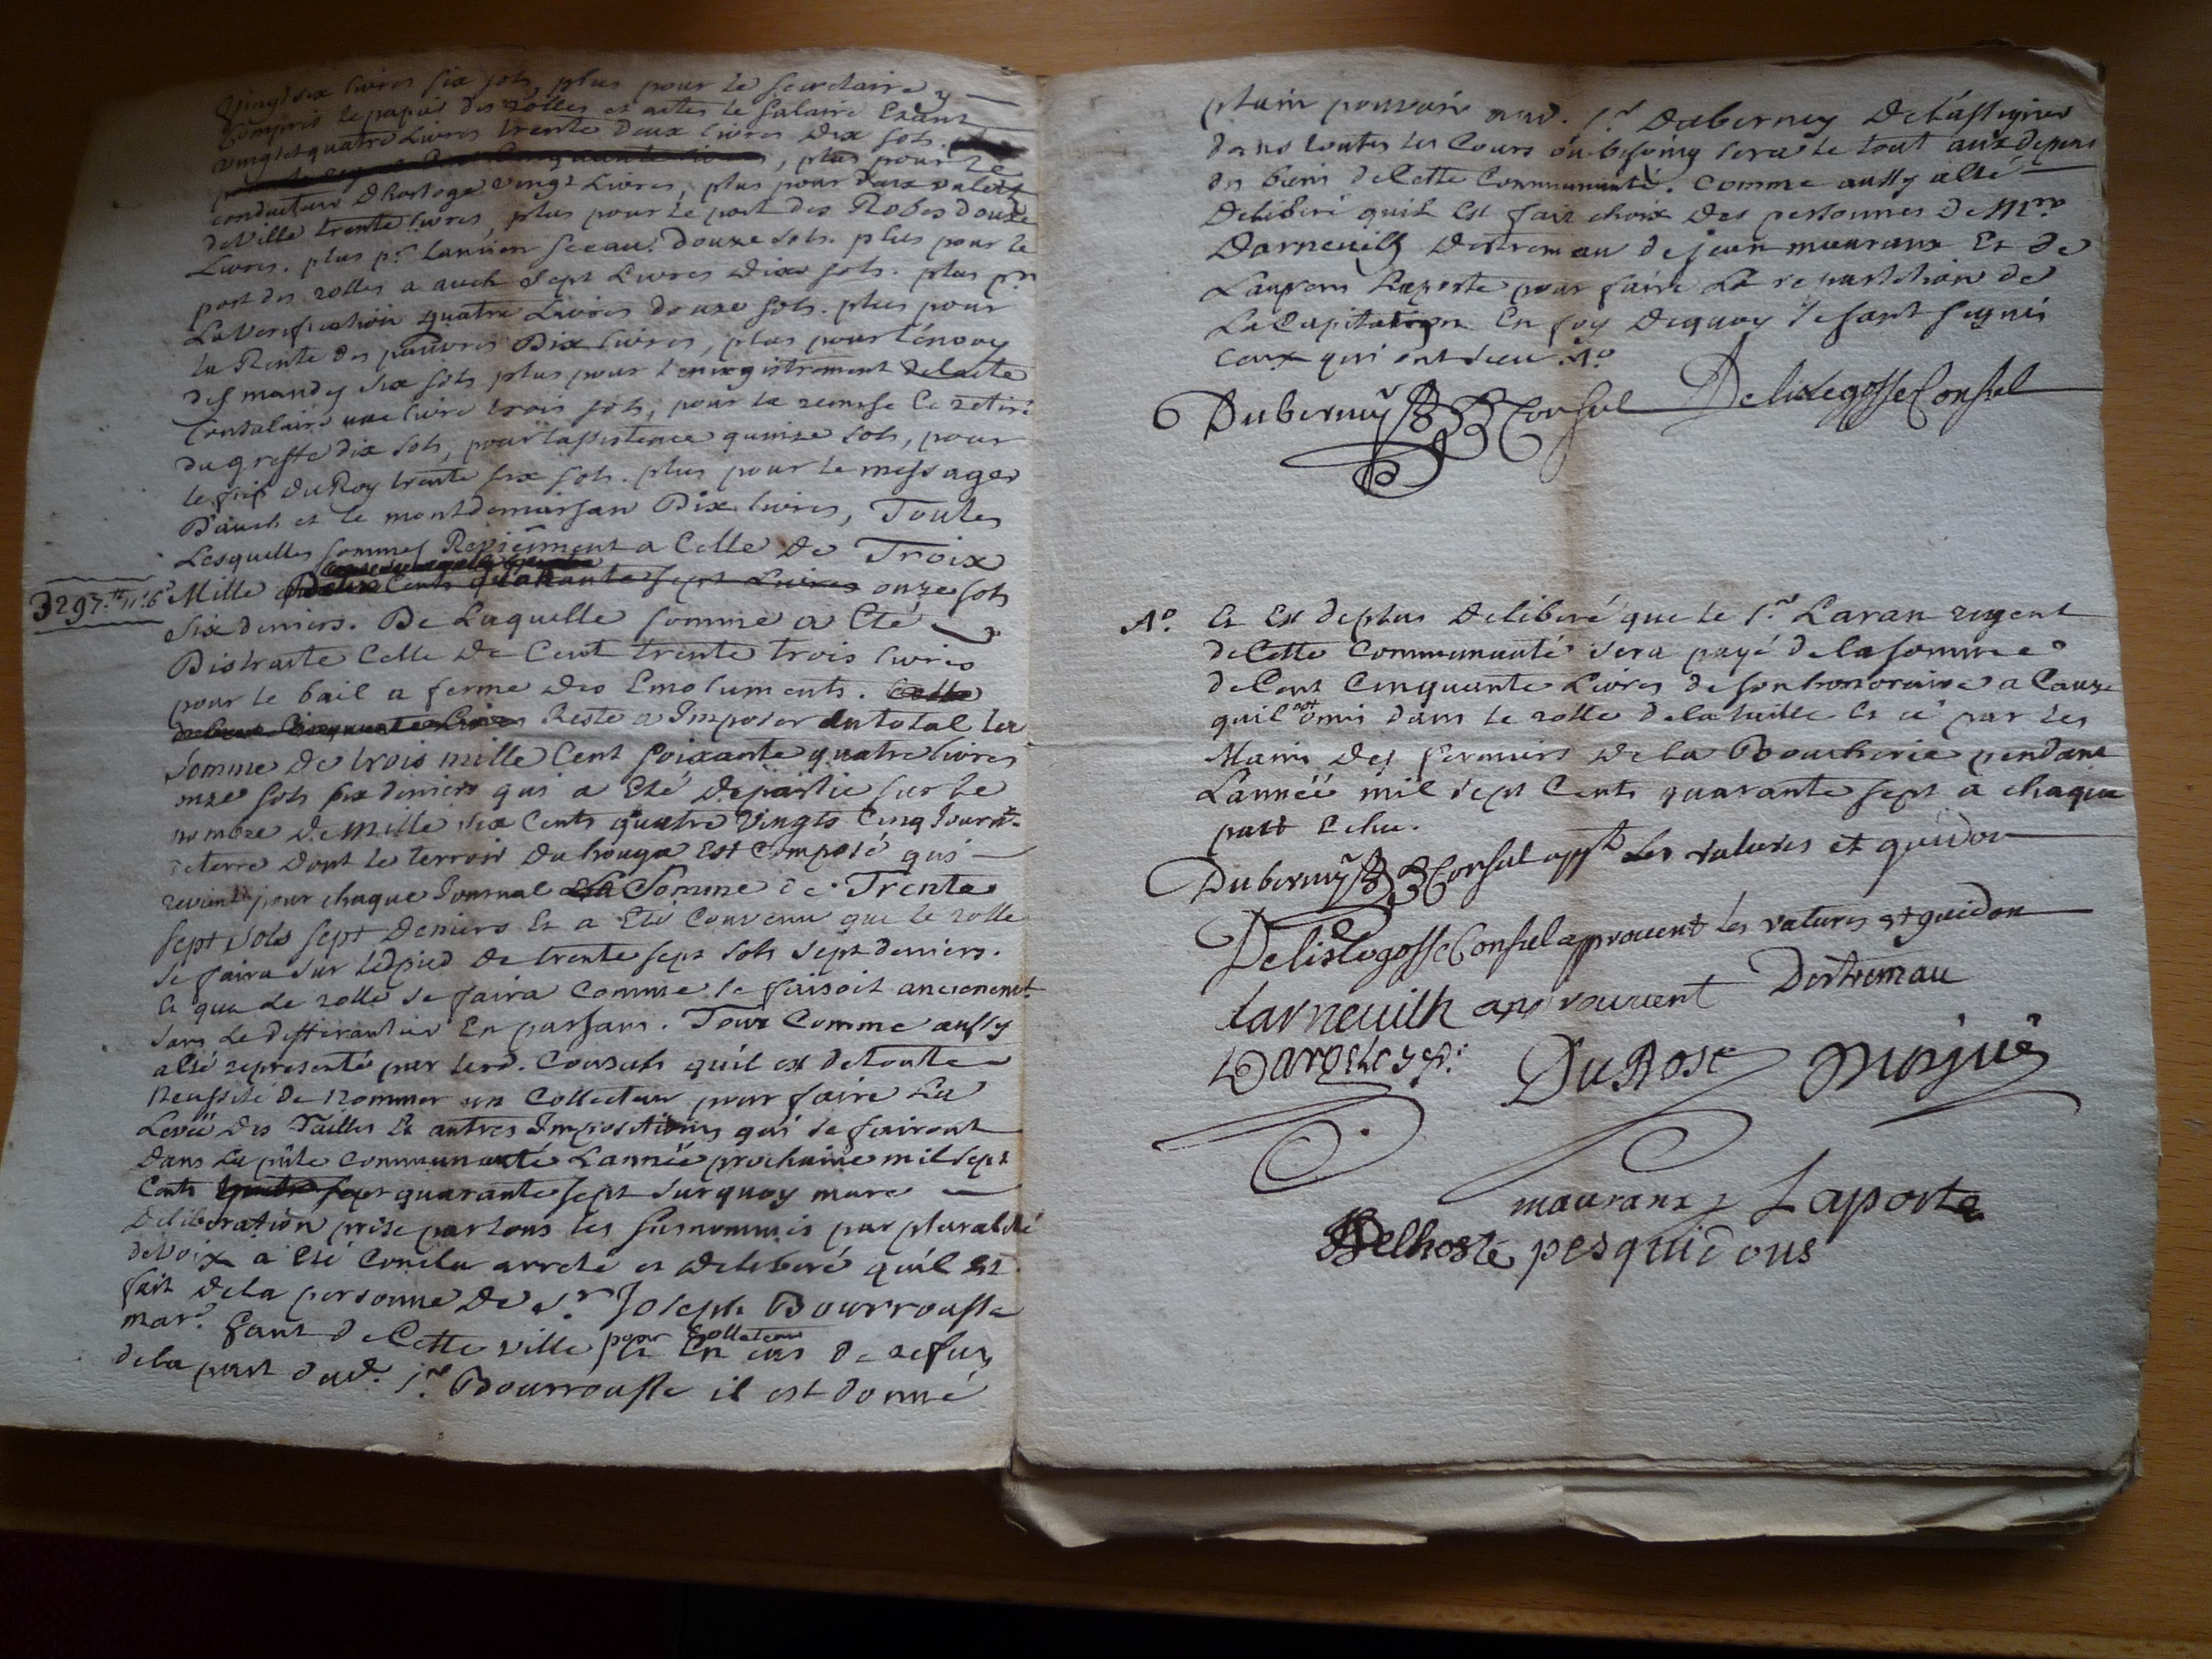 vingt six livres six sols, plus pour le secretaire y
Compris le papier des rolles et actes le salaire Etant
vingt et quatre Livres trente deux livres dix sols.
, plus pour le
conducteur d horloge vingt Livres, plus pour deux valets
de Ville trente livres, plus pour le port des Robes douze
Livres. plus pr. lancien sceau douze sols. plus pour le
port des rolles a auch sept Livres dix sols. plus pr.
La Verification quatre Livres douze sols. plus pour
la Rente des pauvres Dix livres, plus pour lénvoy
des mandes six sols plus pour l'enregistrement de lacte
Consulaire une livre trois sols, pour la remise le retiré
du greffe dix sols, pour lapistence quinze sols, pour
le fief du Roy trente six sols. plus pour le messager
D'auch et le montdemarsan Dix livres, Toutes
Lesquelles sommes Reviennent a Celle De Troix
3297.tt 11.s 6.d Mille Deux Cents quarante sept Livres onze sols
Six deniers. De Laquelle somme a Eté
Distraite Celle De Cent trente trois livres
pour le bail a ferme des Emoluments. Celle
de Cent Cinquante Livres Reste a Imposer du total la
Somme De trois mille Cent soixante quatre livres
onze sols six deniers qui a Eté Departie sur le
nombre De mille six Cents quatre Vingts Cinq Journx.
de terre Dont le terroir du houga Est Composé qui
revient pour chaque Journal La Somme de Trente
sept sols sept Deniers Et a Eté Convenu que le rolle
se faira sur le pied De trente sept sols sept deniers.
Et que Le rolle se faira Comme le faisoit anciennemt.
sans Le differantier En parsans. Tout Comme aussy
a Eté representé par lesd. Consuls qu'il est de toute
Neussité De Nommer un Collecteur pour faire La
Levée Des Tailles Et autres Impositions qui se fairont
Dans La pnte Communauté L'année prochaine mil sept
Cents quarante sept surquoy mure
Deliberation prise par tous les susnommés par pluralité
de Voix a Eté Conclu arreté et deliberé qu'il Est
fait De la personne De Sr. Joseph Bourrousse
mar. Fant de Cette ville pour Collecteur Et En cas de refus
de la part dud. Sr. Bourrousse il est donné
plain pouvoir aud. Sr. Duberney De L'assigner
dans toutes les Cours ou besoing sera le tout aux depens
des biens De Cette Communauté. Comme aussy a Eté
Deliberé quil Est fait choix des personnes De Mrs.
Darneuilh Destremau de jean mauranx Et de
Laurens Laporte pour faire La repartition de
La Capitation En foy Dequoy se sont signés
Ceux qui ont sceu. No.
Duberney Consul Delislegosse Consul
No. Et Est de plus Deliberé que le Sr. Laran regent
de Cette Communauté sera payé de la somme
de Cent Cinquante Livres de son honoraire a Cause
quil est omis dans le rolle de la taille Et cé par les
Mains Des fermiers De la Boucherie pendant
L'année mil sept Cents quarante sept a chaque
pact echu.
Duberney Consul appt. les ratures et guidon
Delislegosse Consul aprouvent les ratures et guidon
Larneuilh aprouvent Destremau
Du Rose
mauranx Laporte
Delhoste pesquidous